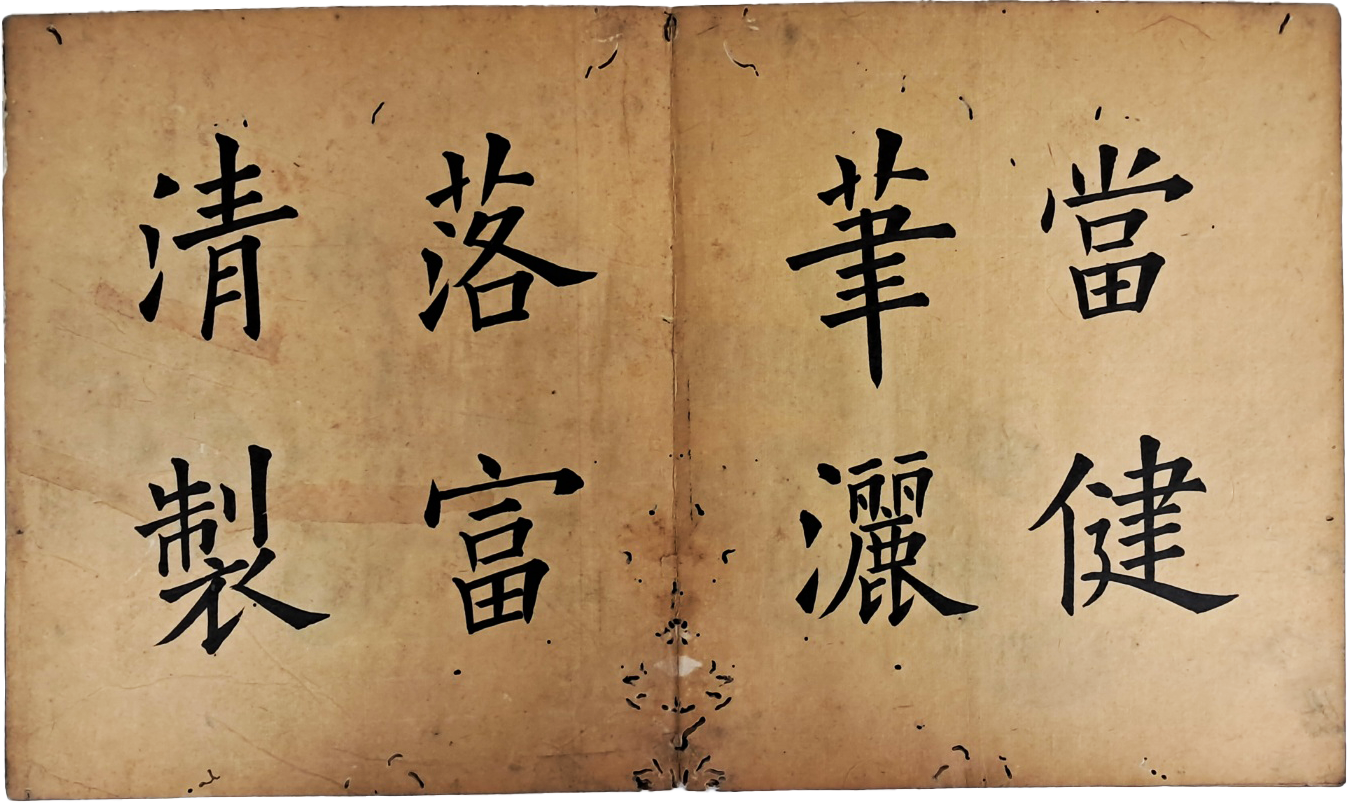 當健
筆灑
落富
清製